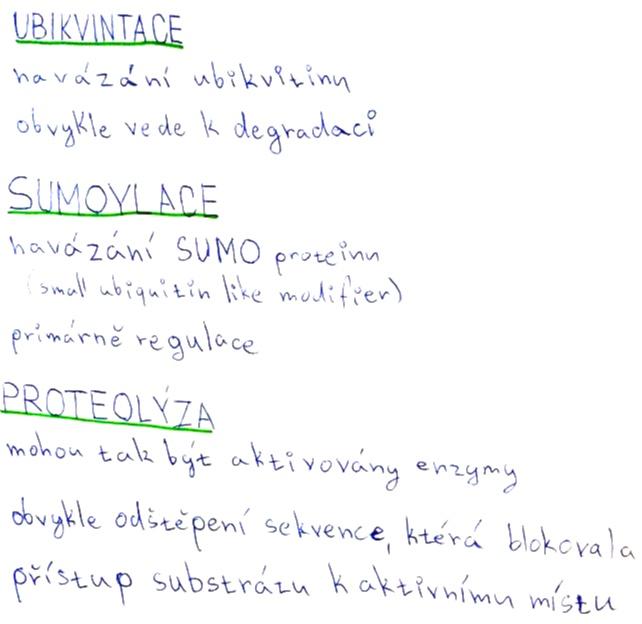 UBIKVINTACE
navázání ubikvitinu
obvykle vede k degradaci
SUMOYLACE
navázání SUMO proteinu
(small ubiquitin like modifier)
primárně regulace
PROTEOLÝZA
mohou tak být aktivovány enzymy
obvykle odštěpení sekvence, která blokovala
přístup substrázu k aktivnímu místu